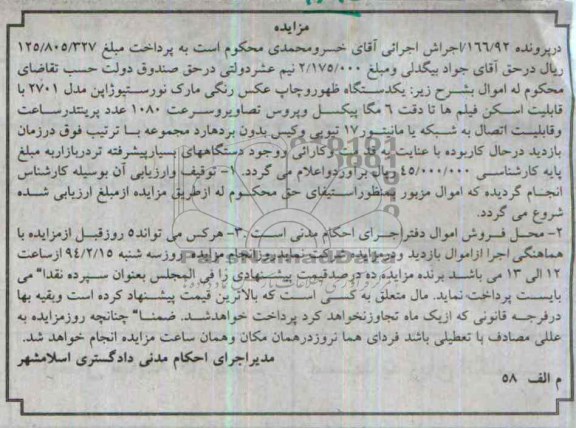 مزایده
درپرونده ۱۶۶/۹۲/اجراش اجرائی آقای خسرومحمدی محکوم است به پرداخت مبلغ ۱۲۵/۸۰۵/۳۲۷
ریال درحق آقای جواد بیگدلی ومبلغ ۲/۱۷۵/۰۰۰ نیم عشردولتی درحق صندوق دولت حسب تقاضای
محکوم له اموال بشرح زیر: یکدستگاه ظهوروچاپ عکس رنگی مارک نورستیوژاپن مدل ۲۷۰۱ با
قابلیت اسکن فیلم ها تا دقت ۶ مگا پیکسل وپروس تصاویروسرعت ۱۰۸۰ عدد پرینتدرساعت
وقابلیت اتصال به شبکه یا مانیتور ۱۷ تیوپی وکیس بدون بردهارد مجموعه با ترتیب فوق درزمان
بازدید درحال کاربوده با عنایت به قدمت وکارائی ووجود دستگاههای بسیارپیشرفته تردربازاربه مبلغ
پایه کارشناسی ۴۵/۰۰۰/۰۰۰ ریال برآوردواعلام می گردد. ۱- توقیف وارزیابی آن بوسیله کارشناس
انجام گردیده که اموال مزبور بمنظوراستیفای حق محکوم له ازطریق مزایده ازمبلغ ارزیابی شده
شروع می گردد.
۲- محل فروش اموال دفتر اجرای احکام مدنی است .۳- هرکس می تواند۵ روزقبل ازمزایده با
هماهنگی اجرا ازاموال بازدید ودرمزایده شرکت نماید.روزانجام مزایده روزسه شنبه ۹۴/۲/۱۵ ازساعت
۱۲ الی ۱۳ می باشد برنده مزایده ده درصدقیمت پیشنهادی رافی المجلس بعنوان سپرده نقدا" می
بایست پرداخت نماید. مال متعلق به کسی است که بالاترین قیمت پیشنهاد کرده است وبقیه بها
درفرجه قانونی که ازیک ماه تجاوزنخواهد کرد پرداخت خواهدشد. ضمنا" چنانچه روزمزایده به
عللی مصادف با تعطیلی باشد فردای هما نروزدرهمان مکان وهمان ساعت مزایده انجام خواهد شد.
مدیراجرای احکام مدنی دادگستری اسلامشهر
م الف ۵۸